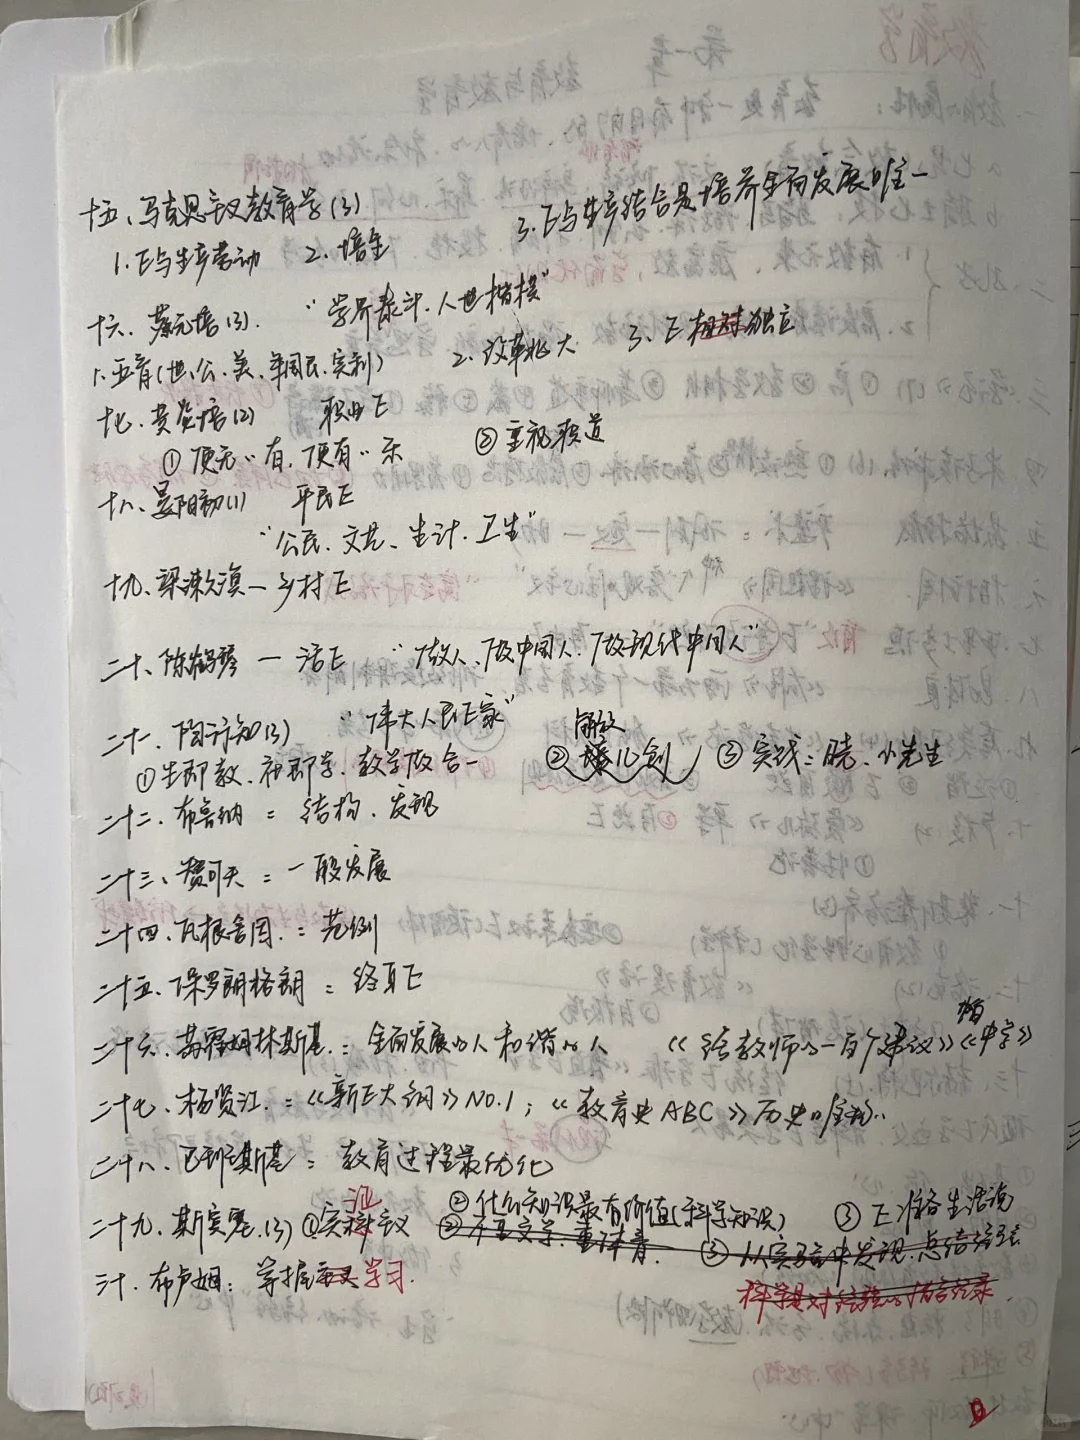 十五、马克思主义教育学(3)
1.E与生产劳动 2.培全 3.E与生产结合是培养全面发展的唯一
十六、蔡元培(3). “学界泰斗.人世楷模”
1.五育(世、公、美、军国民、实利) 2.改革北大 3、E相对独立
十七、黄炎培(2) 职业E
①使无“有,使有“乐 ②主视职道
十八、晏阳初(1) 平民E
“公民、文艺、生计.卫生”
十九、梁漱溟—乡村E
二十、陈鹤琴 — 活E “做人、做中国人、做现代中国人”
二十一、陶行知(3) “伟大人民E家”
①生即教、社即学、教学做合一 ②解放儿创 ③实践:晓、小先生
二十二、布鲁纳 = 结构、发现
二十三、赞可夫 = 一般发展
二十四、瓦根舍因.= 范例
二十五、保罗朗格朗 = 终身E
二十六、苏霍姆林斯基.= 全面发展的人 和谐的人 《给教师的一百个建议》《帕中学》
二十七、杨贤江.=《新E大纲》NO.1;《教育史ABC》历史唯物..
二十八、巴班斯基 = 教育过程最优化
二十九、斯宾塞.(3) ①实证主义 ②什么知识最有价值(科学知识) ③E准备生活说
②不重文学.重体育. ③从实验中发现.总结经验
三十、布卢姆:掌握学习.
科学是对经验的语言纪录.